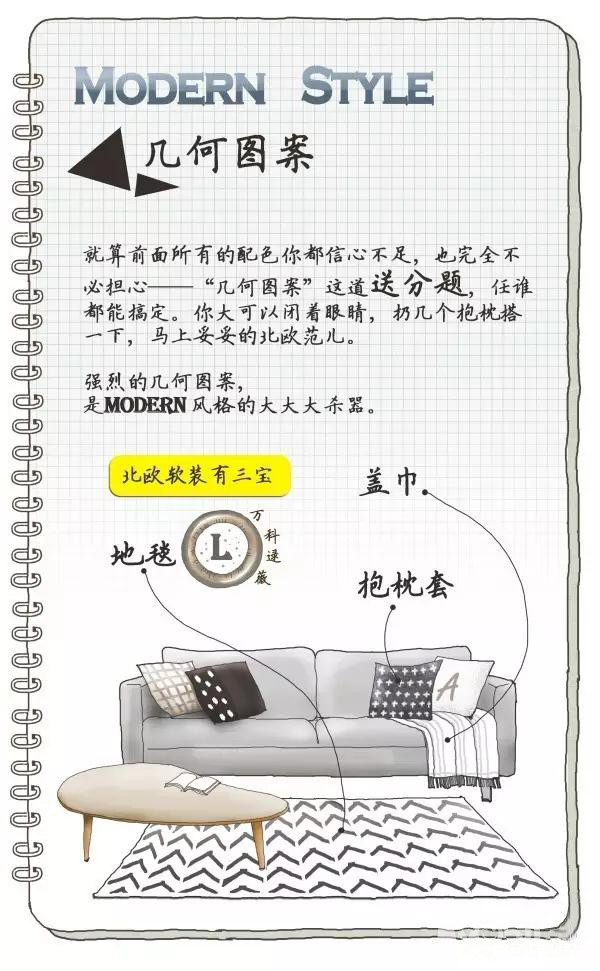 MODERN STYLE
几何图案
就算前面所有的配色你都信心不足，也完全不
必担心——“几何图案”这道送分题，任谁
都能搞定。你大可以闭着眼睛，扔几个抱枕搭
一下，马上妥妥的北欧范儿。
强烈的几何图案，
是MODERN风格的大大大杀器。
北欧软装有三宝
盖巾
地毯
L
万科逯薇
抱枕套
A